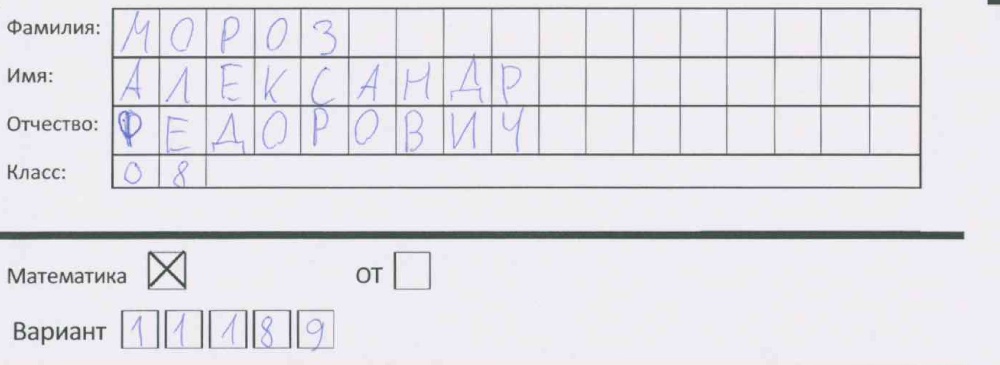 Фамилия: МОРОЗ
Имя: АЛЕКСАНДР
Отчество: ФЕДОРОВИЧ
Класс: 08
Математика ☒ ОТ ☐
Вариант 11189